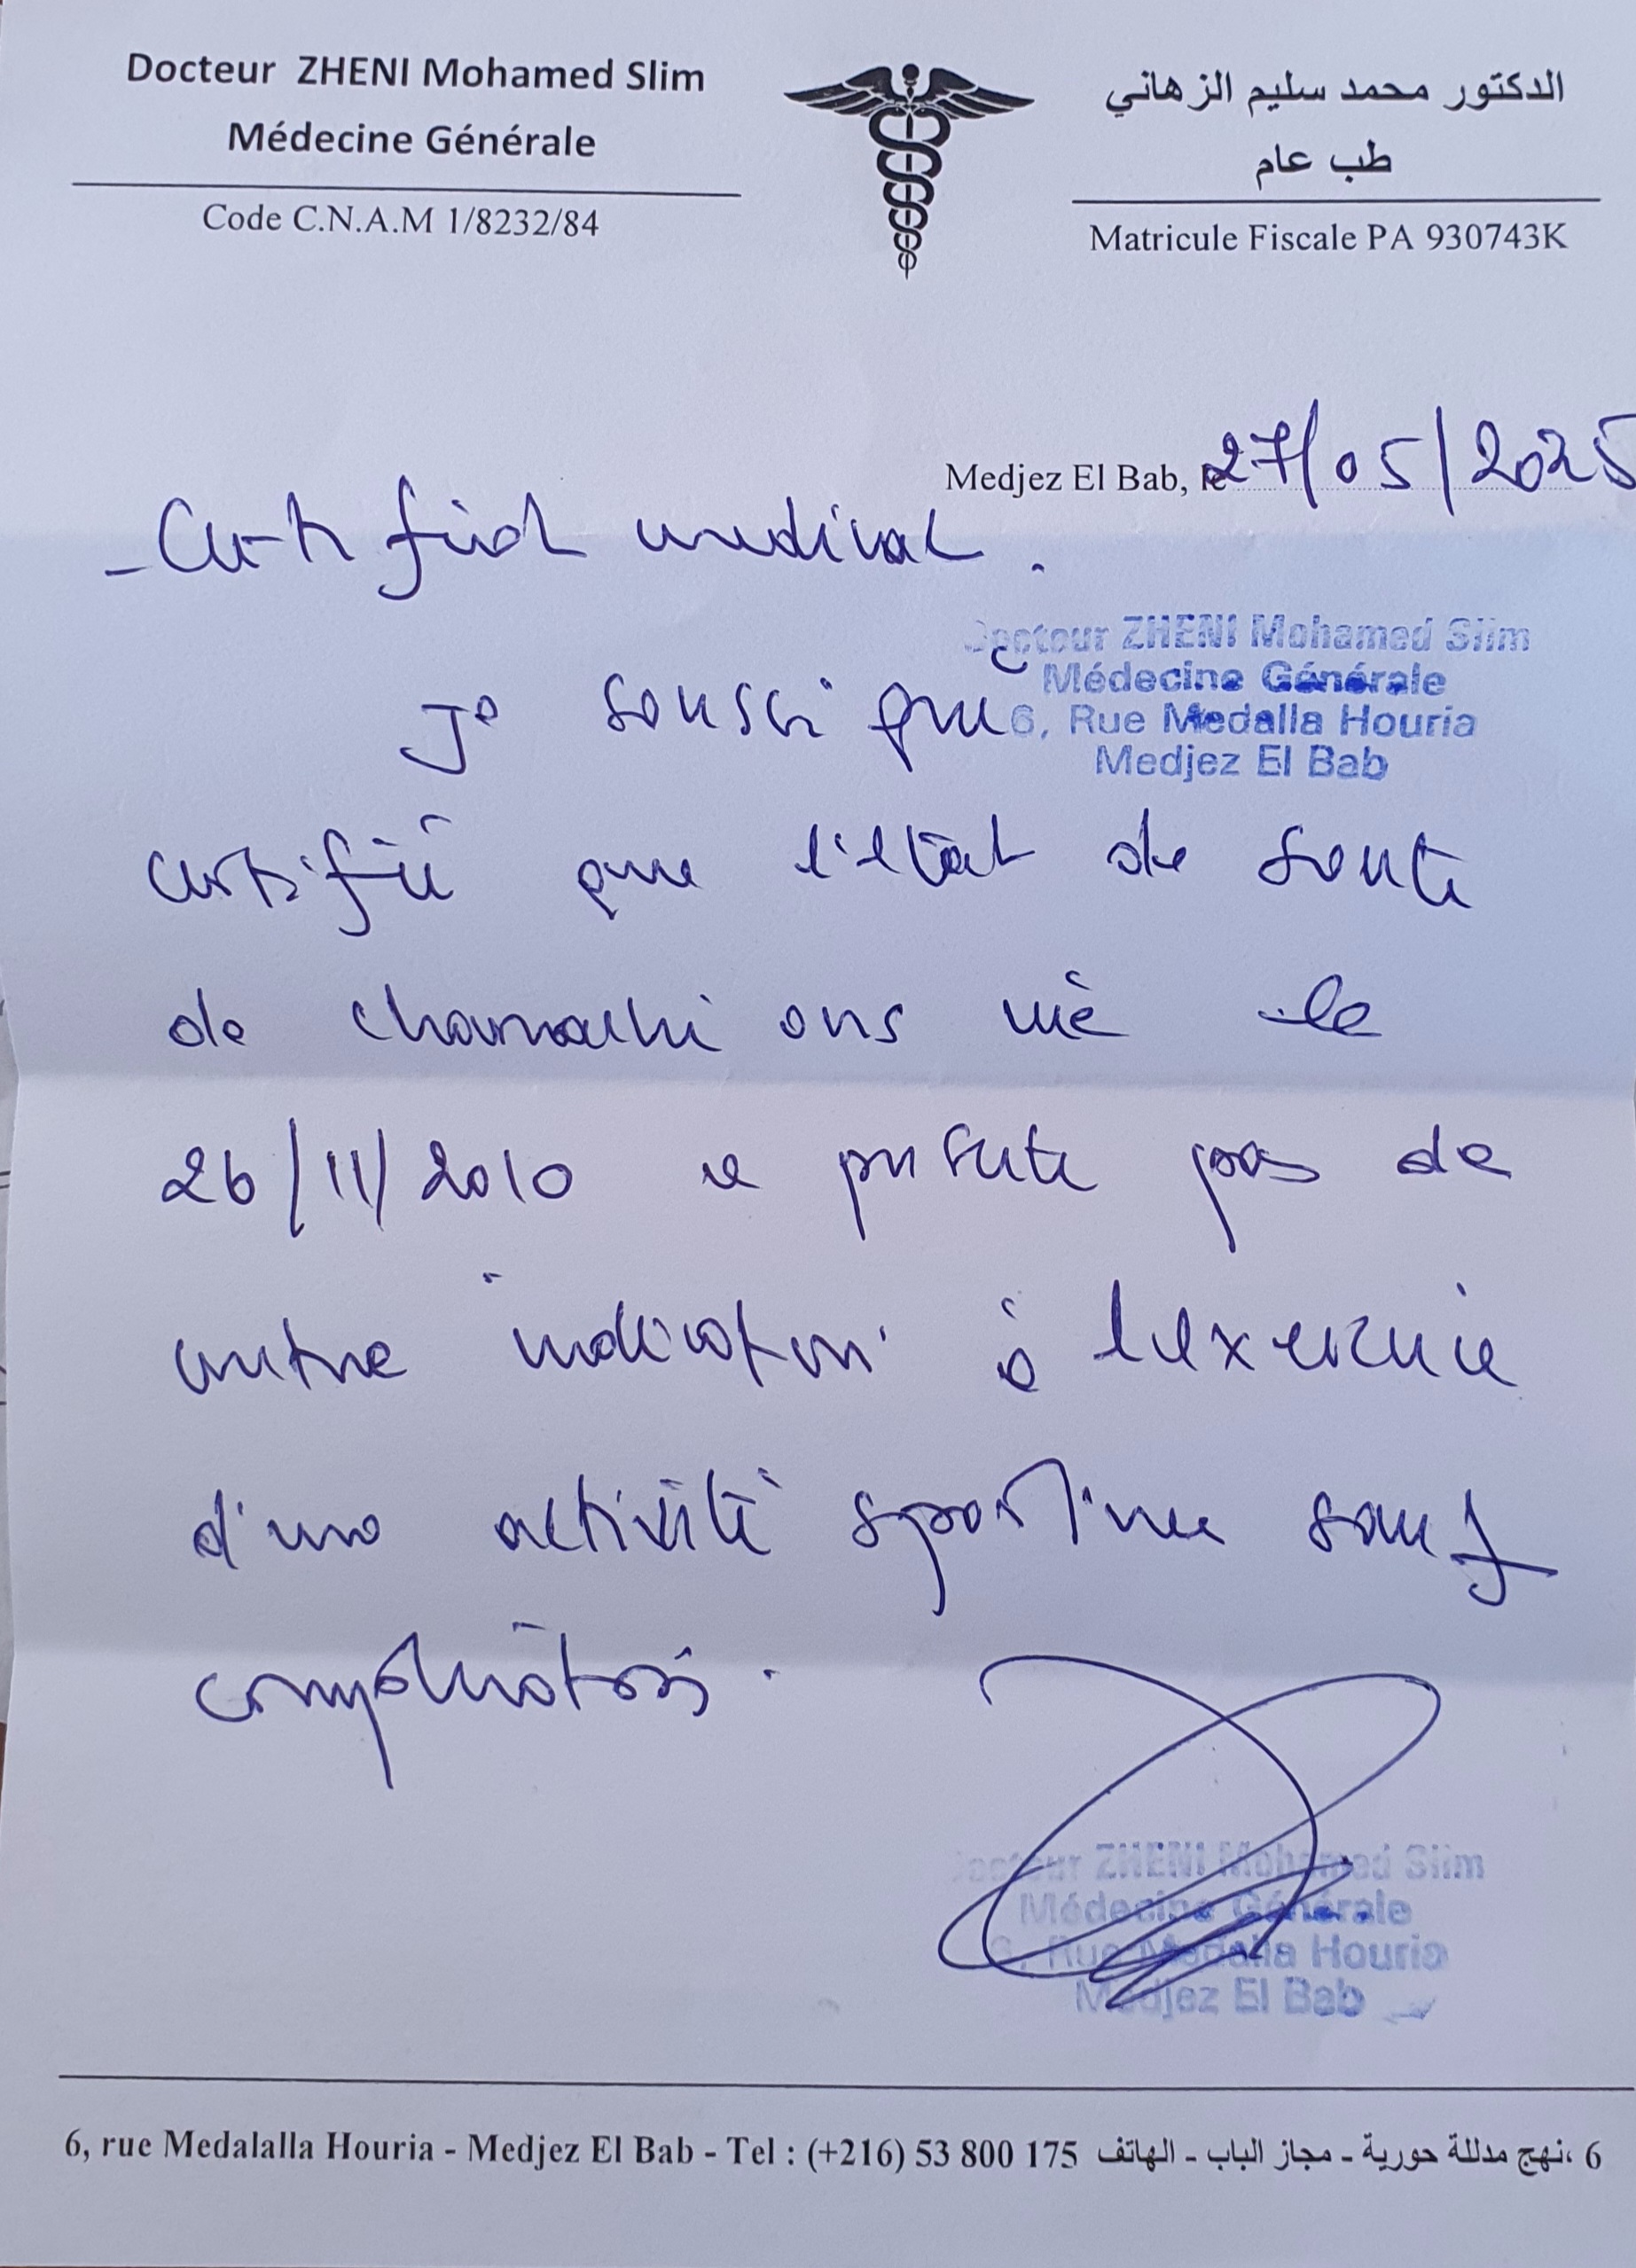 Docteur ZHENI Mohamed Slim
Médecine Générale
Code C.N.A.M 1/8232/84
الدكتور محمد سليم الزهاني
طب عام
Matricule Fiscale PA 930743K
Medjez El Bab, le 27/05/2025
- Certificat medical.
Docteur ZHENI Mohamed Slim
Médecine Générale
6, Rue Medalla Houria
Medjez El Bab
Je soussigné
certifié que l'état de santé
de ons né le
26/11/2010 ne présente pas de
contre indication à l'exercice
d'une activité sportive sauf
complication.
Docteur ZHENI Mohamed Slim
Médecine Générale
6, Rue Medalla Houria
Medjez El Bab
6, rue Medalalla Houria - Medjez El Bab - Tel : (+216) 53 800 175 6 ،نهج مدللة حورية - مجاز الباب - الهاتف